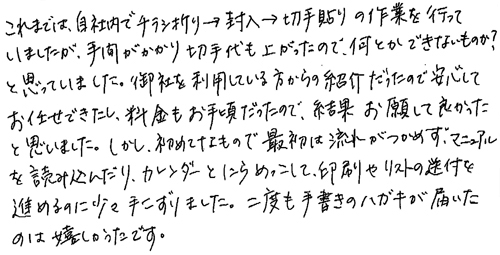 これまでは、自社内でチラシ折り→封入→切手貼りの作業を行って
いましたが、手間がかかり切手代も上がったので、何とかできないものか?
と思っていました。御社を利用している方からの紹介だったので安心して
お任せできたし、料金もお手頃だったので、結果お願して良かった
と思いました。しかし、初めてなもので最初は流れがつかめず、マニュアル
を読み込んだり、カレンダーとにらめっこして、印刷やリストの送付を
進めるのに少々手こずりました。二度も手書きのハガキが届いた
のは嬉しかったです。